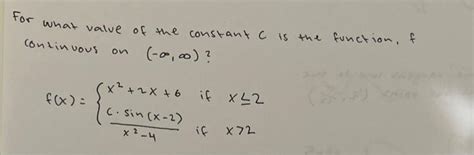 For what value of the constant c is the function, f
continuous on (-∞, ∞) ?
f(x) = { x² + 2x + 6 if x ≤ 2
c · sin(x-2) / x² - 4 if x > 2